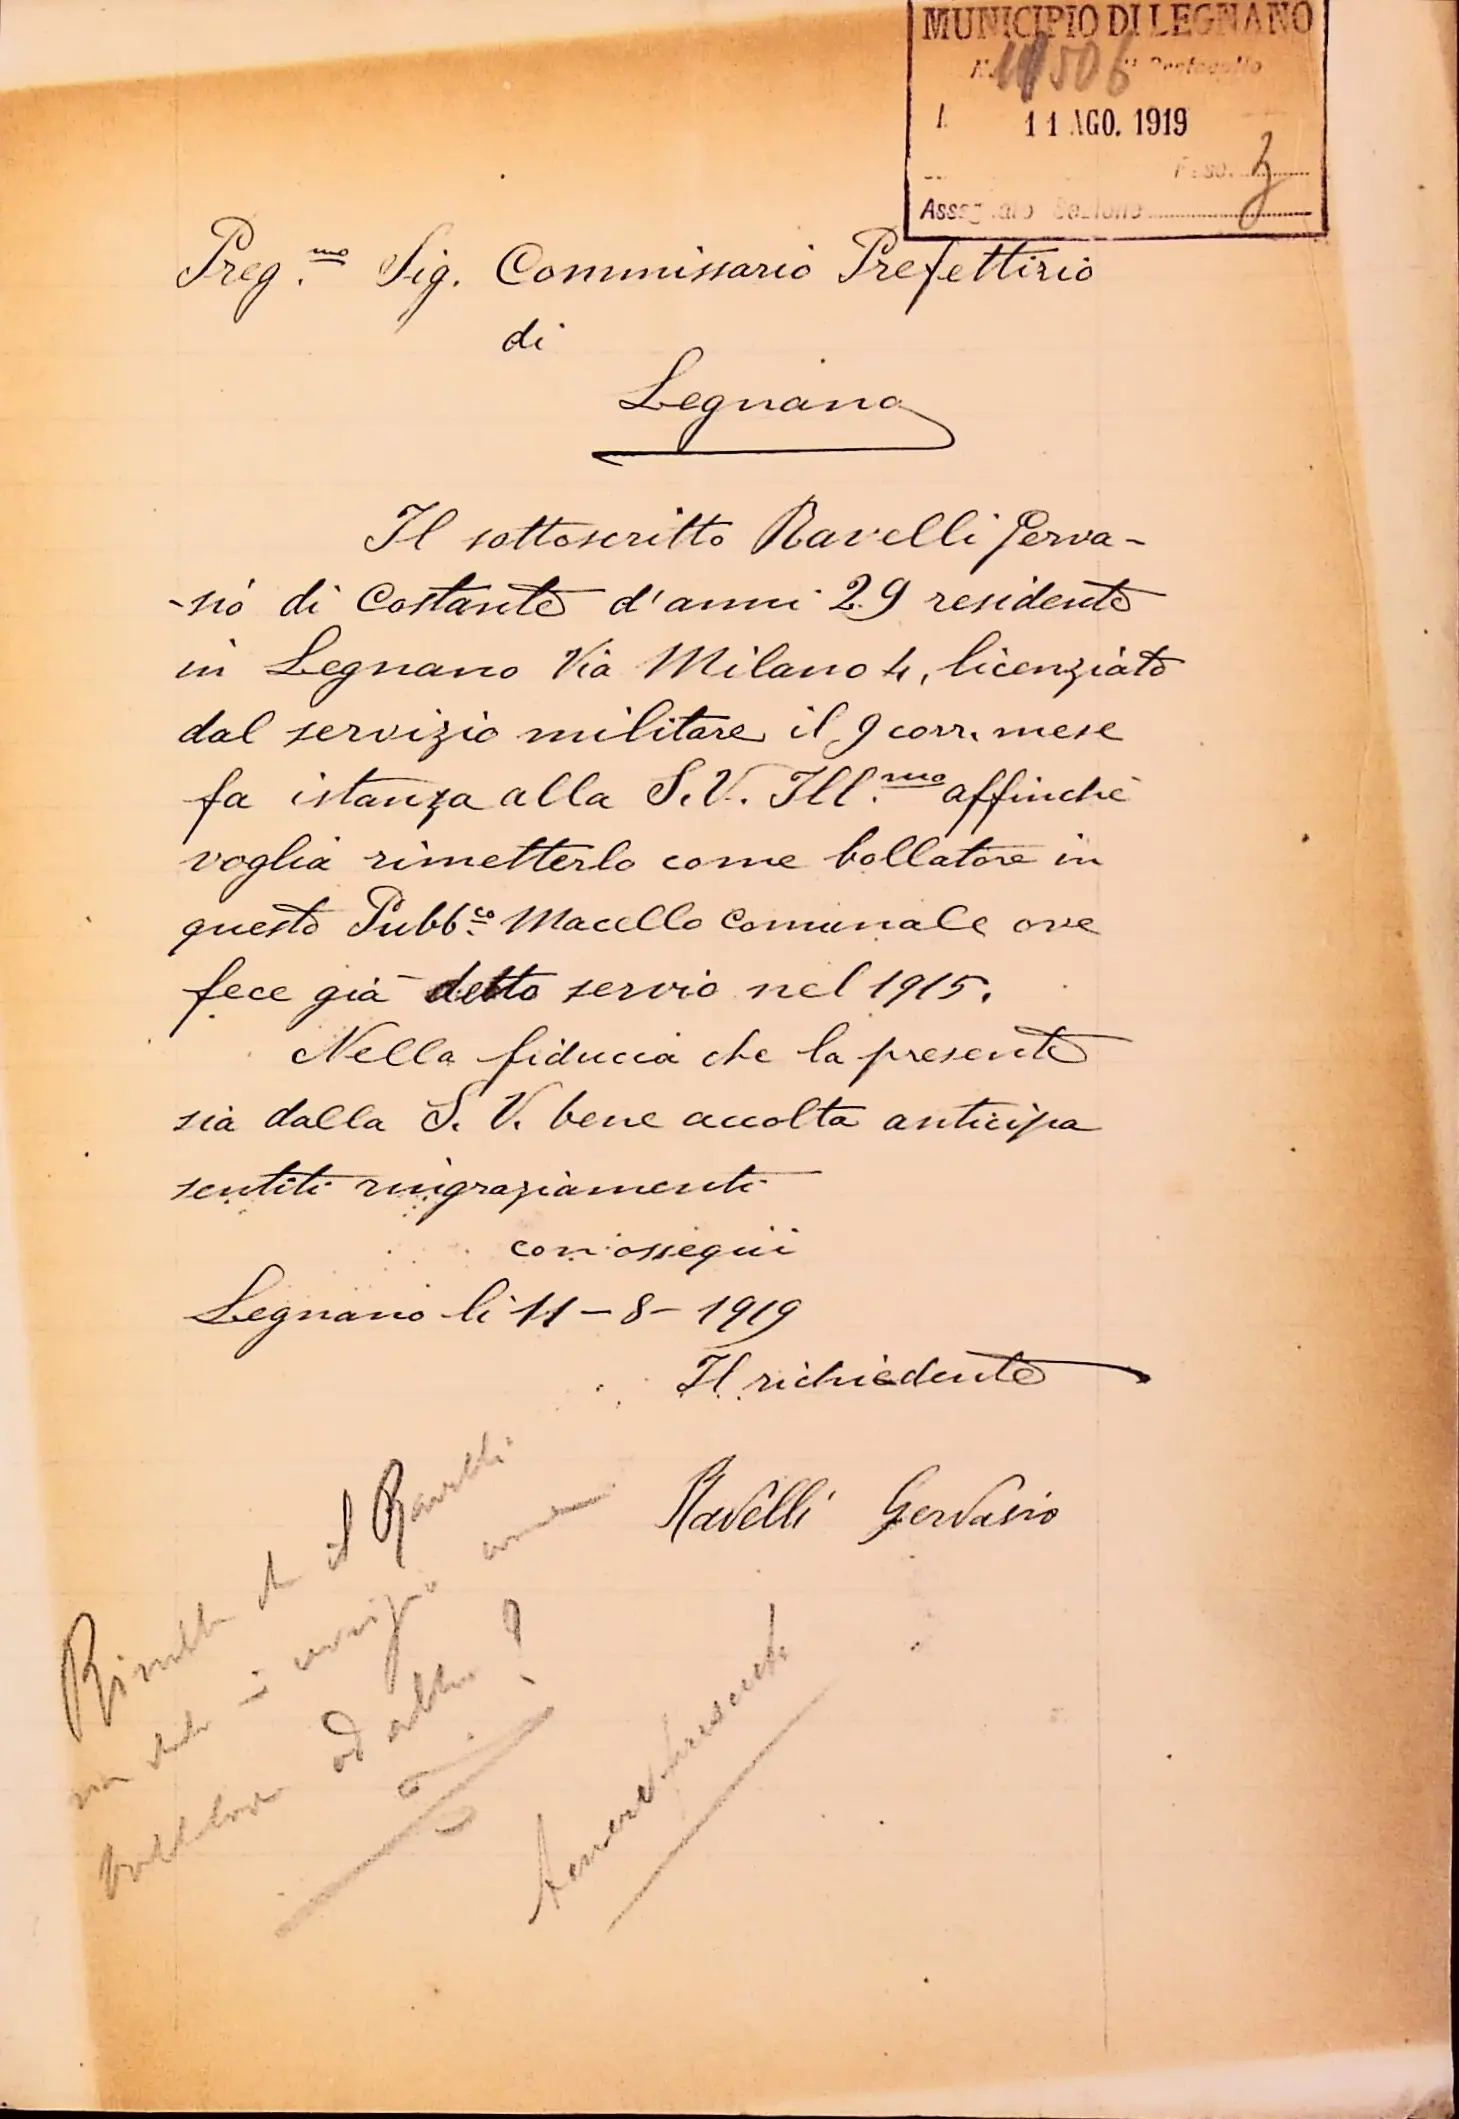 MUNICIPIO DI LEGNANO
11506 Protocollo
11 AGO. 1919
Fasc.
Assegnato Sezione
Preg.mo Sig. Commissario Prefettizio
di
Legnano
Il sottoscritto Ravelli Gerva-
-sio di Costante d'anni 29 residente
in Legnano Via Milano 4, licenziato
dal servizio militare il 9 corr. mese
fa istanza alla S.V. Ill.mo affinchè
voglia rimetterlo come bollatore in
questo Pubb.co Macello Comunale ove
fece già detto servio nel 1915.
Nella fiducia che la presente
sia dalla S. V. bene accolta anticipa
sentiti ringraziamenti
con ossequii
Legnano li 11-8-1919
Il richiedente
Ravelli Gervasio
il Ravelli
servizio come
bollatore od altro?